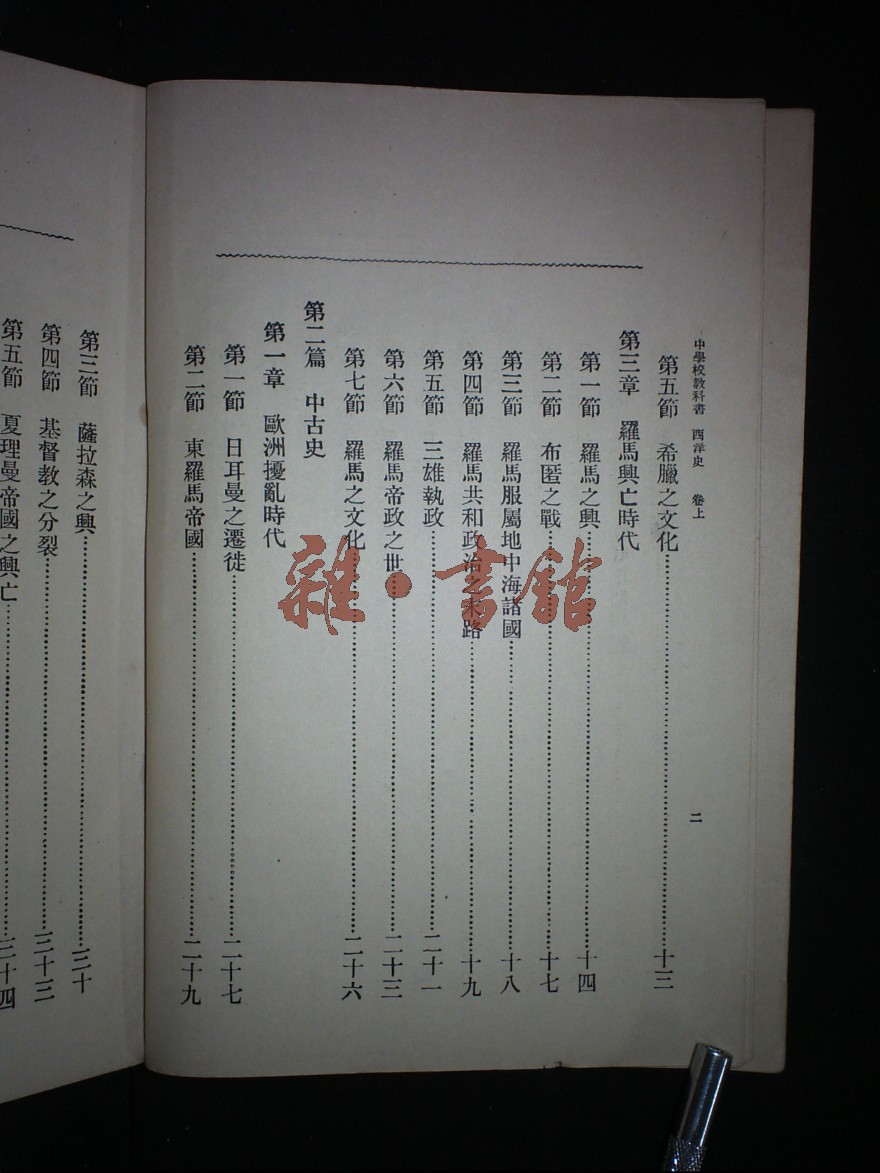 中學校教科書 西洋史 卷上 二
第五節 希臘之文化 十三
第三章 羅馬興亡時代
第一節 羅馬之興 十四
第二節 布匿之戰 十七
第三節 羅馬服屬地中海諸國 十八
第四節 羅馬共和政治之末路 十九
第五節 三雄執政 二十一
第六節 羅馬帝政之世 二十三
第七節 羅馬之文化 二十六
第二篇 中古史
第一章 歐洲擾亂時代
第一節 日耳曼之遷徙 二十七
第二節 東羅馬帝國 二十九
第三節 薩拉森之興 三十
第四節 基督教之分裂 三十三
第五節 夏理曼帝國之興亡 三十四
雜·書館